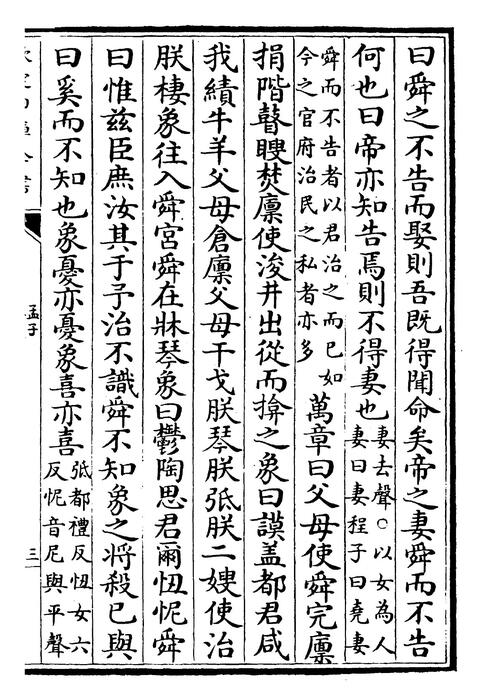 曰舜之不告而娶則吾既得聞命矣帝之妻舜而不告
何也曰帝亦知告焉則不得妻也
妻去聲○以女為人
妻曰妻程子曰堯妻
舜而不告者以君治之而已如
今之官府治民之私者亦多
萬章曰父母使舜完廩
捐階瞽瞍焚廩使浚井出從而揜之象曰謨盖都君咸
我績牛羊父母倉廩父母干戈朕琴朕弤朕二嫂使治
朕棲象往入舜宮舜在牀琴象曰鬱陶思君爾忸怩舜
曰惟兹臣庶汝其于予治不識舜不知象之將殺已與
曰奚而不知也象憂亦憂象喜亦喜
弤都禮反忸女六
反怩音尼與平聲
孟子
三